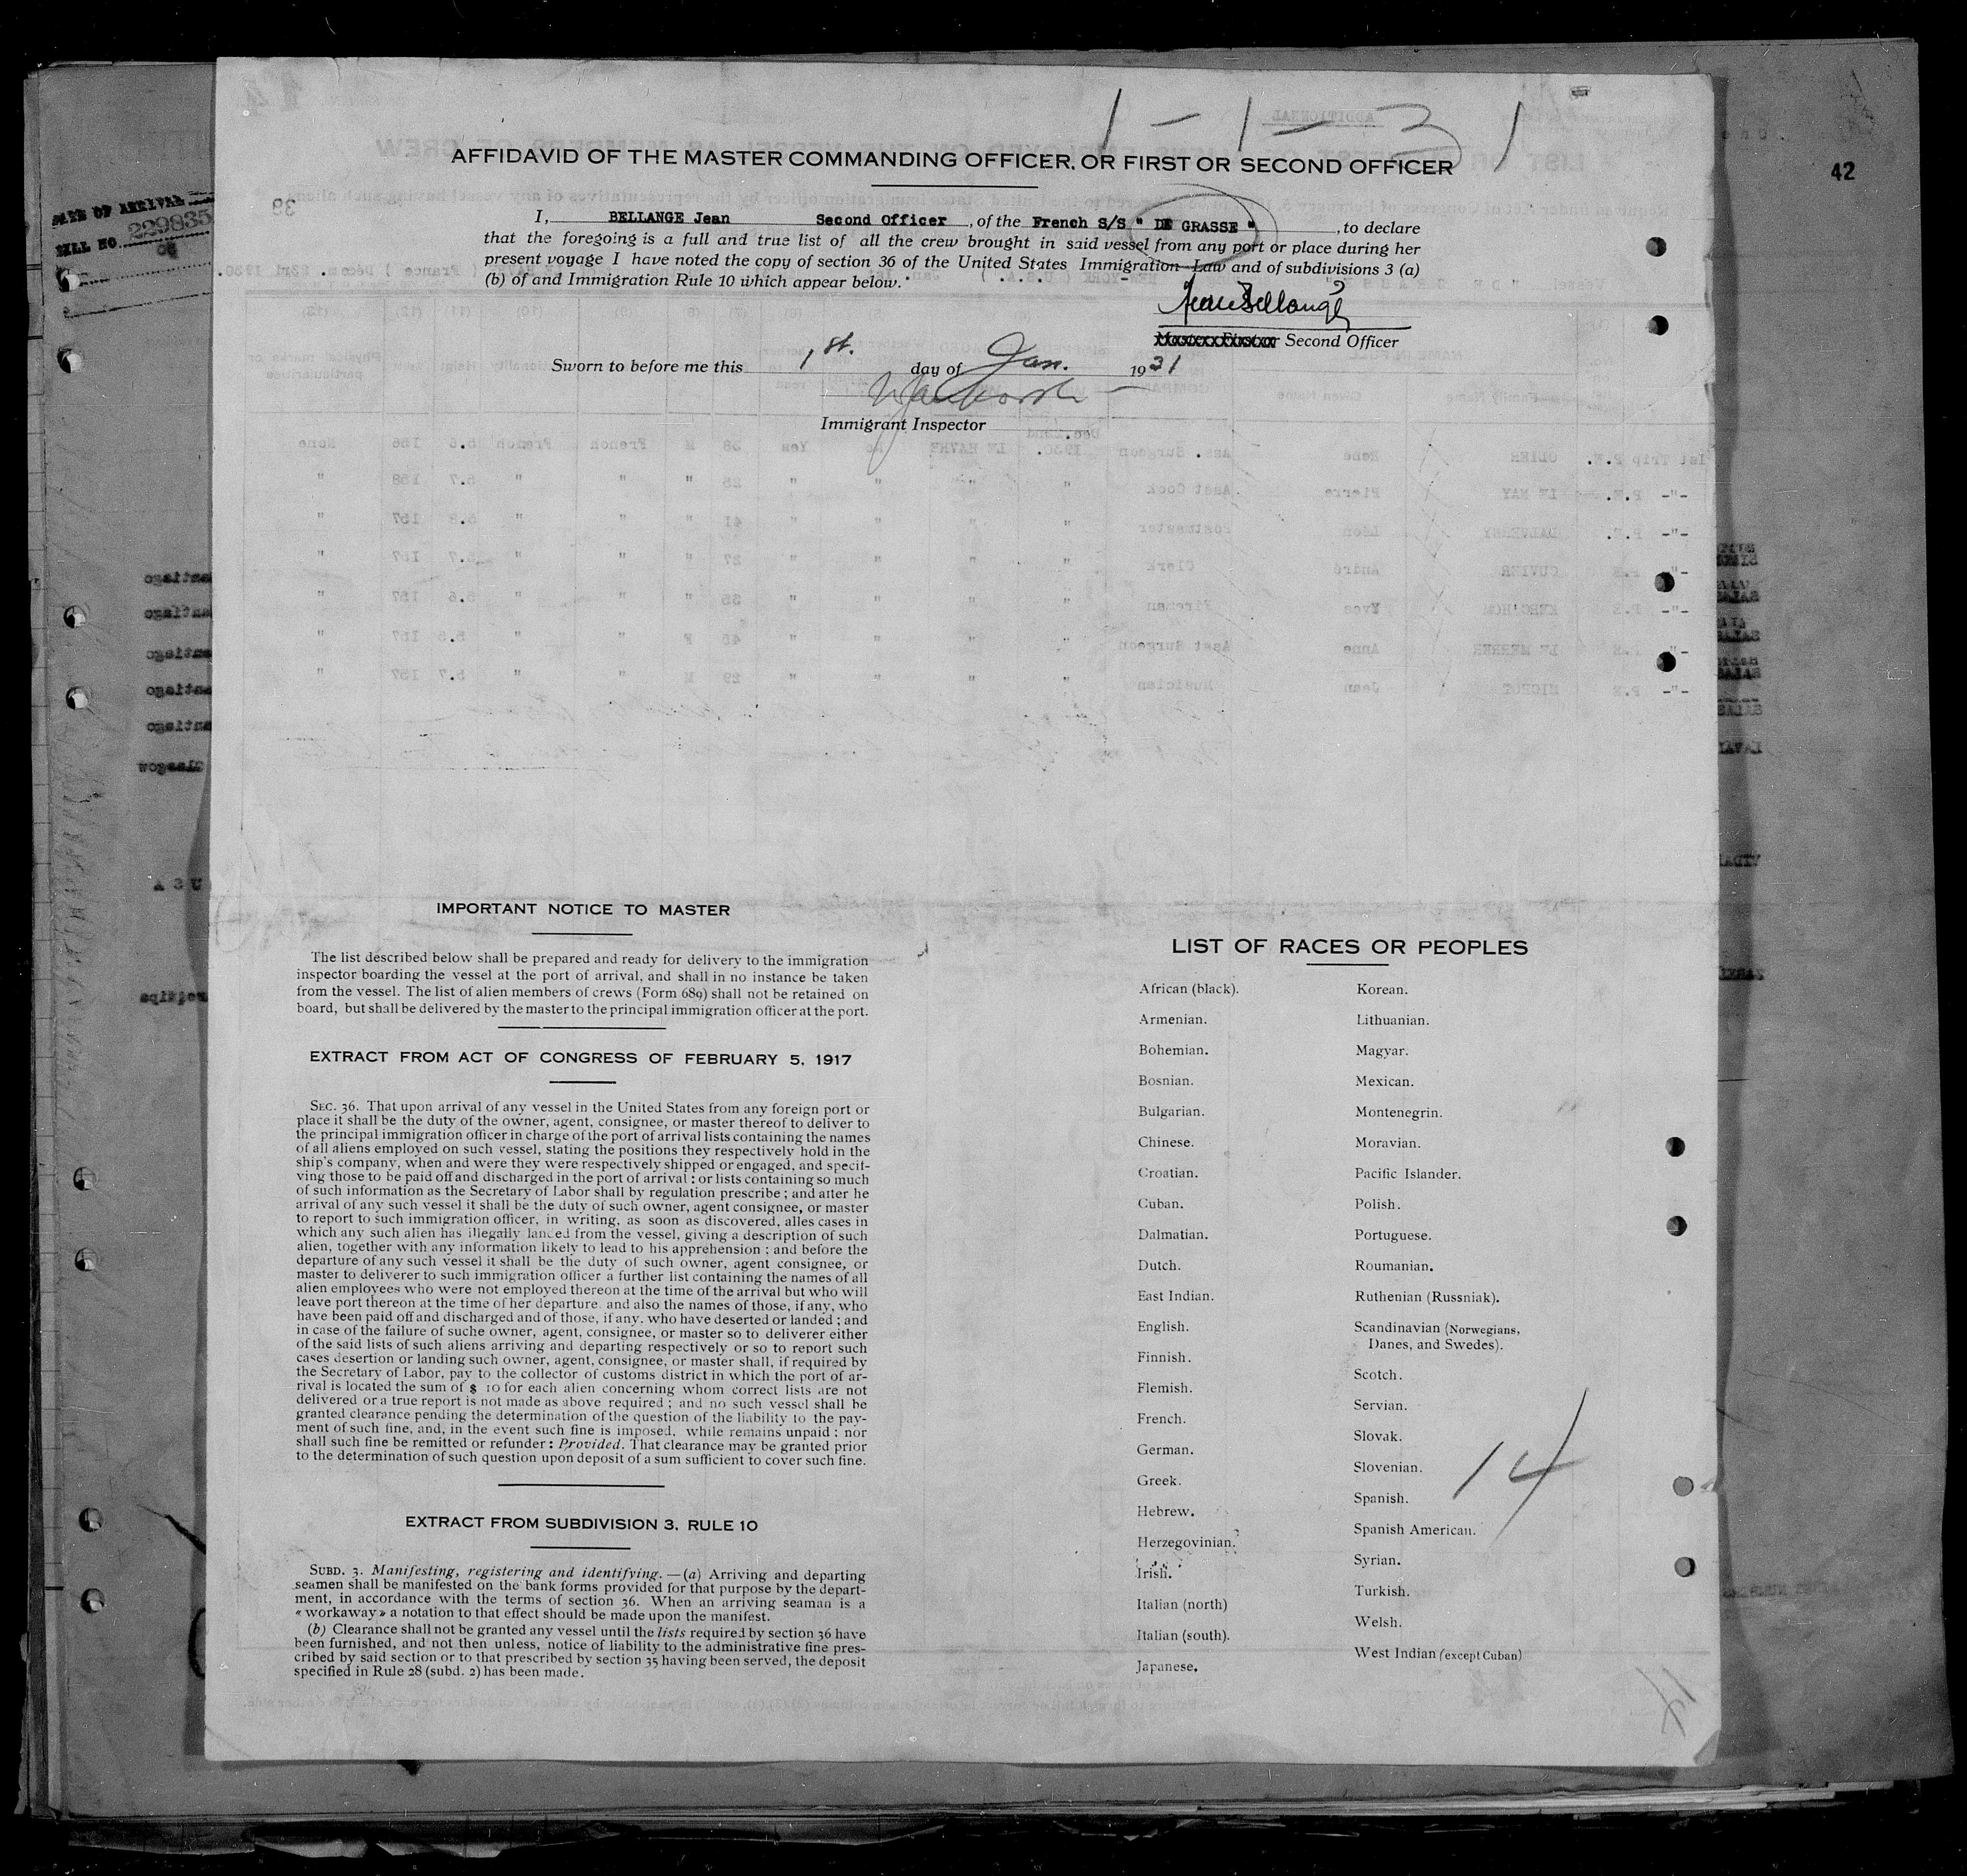 1-1-31
AFFIDAVID OF THE MASTER COMMANDING OFFICER, OR FIRST OR SECOND OFFICER
42
DATE OF ARRIVAL
BILL NO. 229835
I, BELLANGE Jean Second Officer, of the French S/S " DE GRASSE ", to declare
that the foregoing is a full and true list of all the crew brought in said vessel from any port or place during her
present voyage I have noted the copy of section 36 of the United States Immigration Law and of subdivisions 3 (a)
(b) of and Immigration Rule 10 which appear below.
Jean Bellangé
Second Officer
Sworn to before me this 1st. day of Jan. 1931
Immigrant Inspector
IMPORTANT NOTICE TO MASTER
The list described below shall be prepared and ready for delivery to the immigration
inspector boarding the vessel at the port of arrival, and shall in no instance be taken
from the vessel. The list of alien members of crews (Form 689) shall not be retained on
board, but shall be delivered by the master to the principal immigration officer at the port.
EXTRACT FROM ACT OF CONGRESS OF FEBRUARY 5, 1917
SEC. 36. That upon arrival of any vessel in the United States from any foreign port or
place it shall be the duty of the owner, agent, consignee, or master thereof to deliver to
the principal immigration officer in charge of the port of arrival lists containing the names
of all aliens employed on such vessel, stating the positions they respectively hold in the
ship's company, when and were they were respectively shipped or engaged, and specit-
ving those to be paid off and discharged in the port of arrival : or lists containing so much
of such information as the Secretary of Labor shall by regulation prescribe ; and atter he
arrival of any such vessel it shall be the duty of such owner, agent consignee, or master
to report to such immigration officer, in writing, as soon as discovered, alles cases in
which any such alien has illegally lanced from the vessel, giving a description of such
alien, together with any information likely to lead to his apprehension ; and before the
departure of any such vessel it shall be the duty of such owner, agent consignee, or
master to deliverer to such immigration officer a further list containing the names of all
alien employees who were not employed thereon at the time of the arrival but who will
leave port thereon at the time of her departure, and also the names of those, if any, who
have been paid off and discharged and of those, if any, who have deserted or landed ; and
in case of the failure of suche owner, agent, consignee, or master so to deliverer either
of the said lists of such aliens arriving and departing respectively or so to report such
cases desertion or landing such owner, agent, consignee, or master shall, if required by
the Secretary of Labor, pay to the collector of customs district in which the port of ar-
rival is located the sum of $ 10 for each alien concerning whom correct lists are not
delivered or a true report is not made as above required ; and no such vessel shall be
granted clearance pending the determination of the question of the liability to the pay-
ment of such fine, and, in the event such fine is imposed, while remains unpaid ; nor
shall such fine be remitted or refunder : Provided. That clearance may be granted prior
to the determination of such question upon deposit of a sum sufficient to cover such fine.
EXTRACT FROM SUBDIVISION 3, RULE 10
SUBD. 3. Manifesting, registering and identifying. — (a) Arriving and departing
seamen shall be manifested on the bank forms provided for that purpose by the depart-
ment, in accordance with the terms of section 36. When an arriving seaman is a
« workaway » a notation to that effect should be made upon the manifest.
(b) Clearance shall not be granted any vessel until the lists required by section 36 have
been furnished, and not then unless, notice of liability to the administrative fine pres-
cribed by said section or to that prescribed by section 35 having been served, the deposit
specified in Rule 28 (subd. 2) has been made.
LIST OF RACES OR PEOPLES
African (black).
Armenian.
Bohemian.
Bosnian.
Bulgarian.
Chinese.
Croatian.
Cuban.
Dalmatian.
Dutch.
East Indian.
English.
Finnish.
Flemish.
French.
German.
Greek.
Hebrew.
Herzegovinian.
Irish.
Italian (north)
Italian (south).
Japanese.
Korean.
Lithuanian.
Magyar.
Mexican.
Montenegrin.
Moravian.
Pacific Islander.
Polish.
Portuguese.
Roumanian.
Ruthenian (Russniak).
Scandinavian (Norwegians,
Danes, and Swedes).
Scotch.
Servian.
Slovak.
Slovenian.
Spanish.
Spanish American.
Syrian.
Turkish.
Welsh.
West Indian (except Cuban)
14